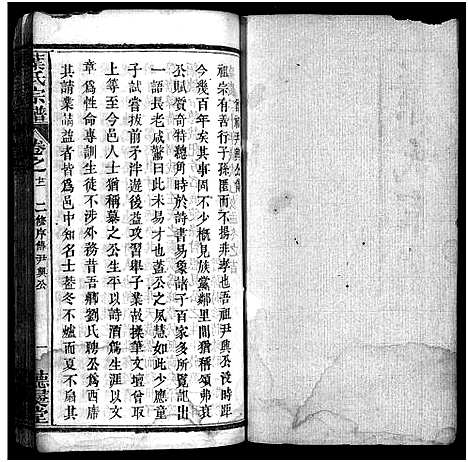 祖尹興公傳
祖宗有善行子孫匿而不揚非孝也吾祖尹興公沒時距
今幾百年矣其事固不少概見族黨鄰里間猶稱頌弗衰
公賦質奇特總角時於詩書易象諸子百家多所寓記出
一語長老咸驚曰此未易才也蓋公之夙慧如此少應童
子試嘗拔前矛不泮遊後益攻習舉子業故操筆文壇曾取
上等至今邑人士猶稱慕之公生平以詩酒為生涯以文
章為性命專訓生徒不涉外務昔吾鄉劉氏聘公為西席
其請業請益者皆為邑中知名士蓋冬不爐而夏不扇
葉氏宗譜
卷之
二修序傳尹興公
一
德馨堂